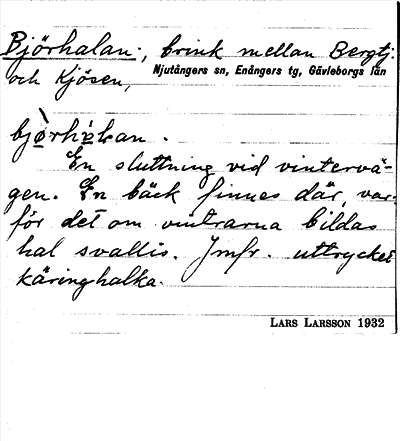 Björhalan, brink mellan Bergtj.
och Kjösen, Njutångers sn, Enångers tg, Gävleborgs län
En sluttning vid vintervä-
gen. En bäck finnes där, var-
för det om vintrarna bildas
hal svallis. Jmfr. uttrycket
käringhalka.
LARS LARSSON 1932